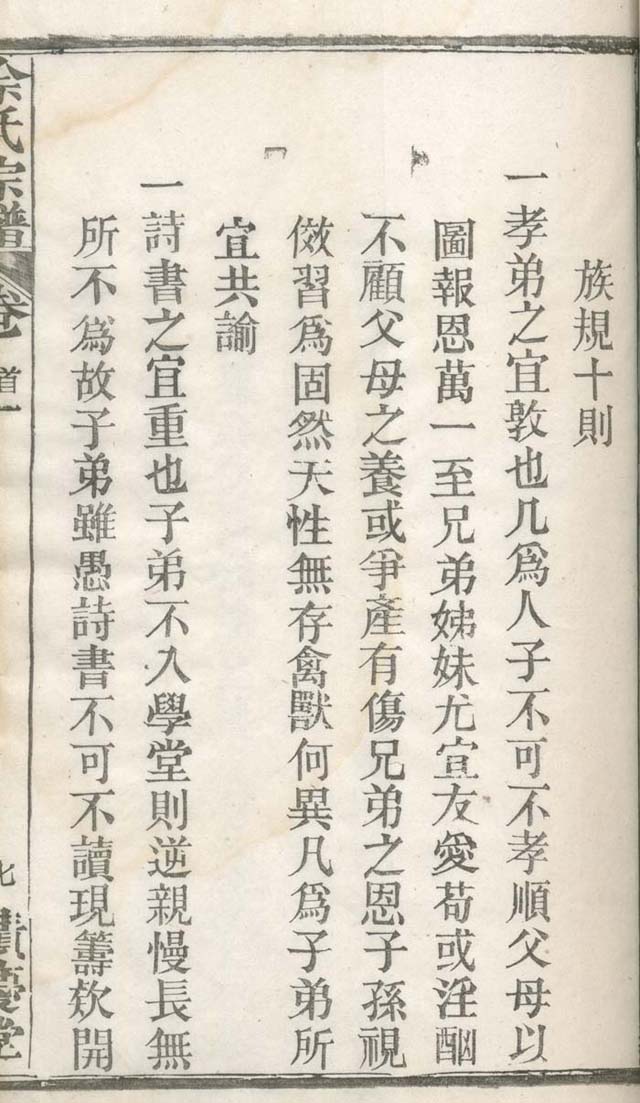 族規十則
一孝弟之宜敦也凡為人子不可不孝順父母以
圖報恩萬一至兄弟姊妹尤宜友愛苟或淫酗
不顧父母之養或爭產有傷兄弟之恩子孫視
傚習為固然天性無存禽獸何異凡為子弟所
宜共諭
一詩書之宜重也子弟不入學堂則逆親慢長無
所不為故子弟雖愚詩書不可不讀現籌欵開
余氏宗譜
卷首一
七
慶堂